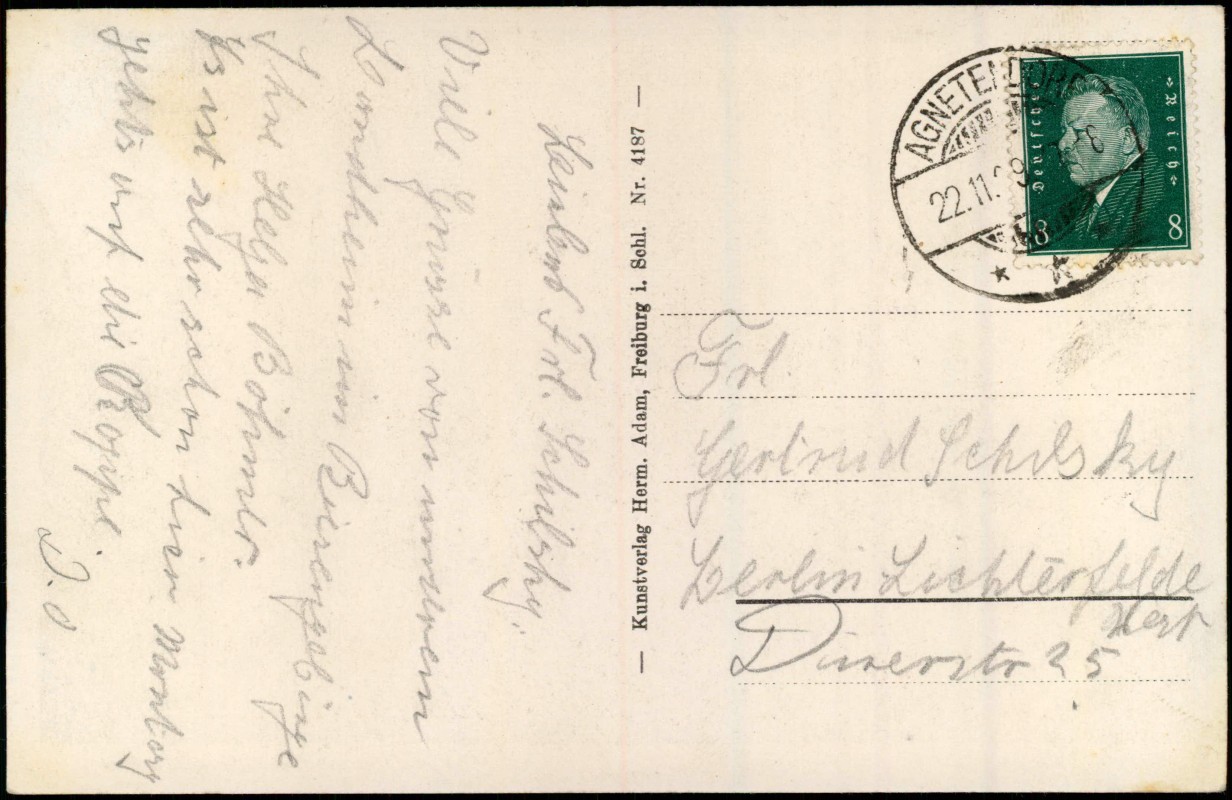 Liebes Frl. Schilsky.
Viele Grüsse von unserem
Landheim im Riesengebirge
Ihre Helga Böhmer.
Es ist sehr schön hier Montag
gehts auf die Koppe.
Kunstverlag Herm. Adam, Freiburg i. Schl. Nr. 4187
AGNETENDORF
22.11.
Deutsches Reich
8 8
Frl.
Gertrud Schilsky
Berlin Lichterfelde
West
Dürerstr 25